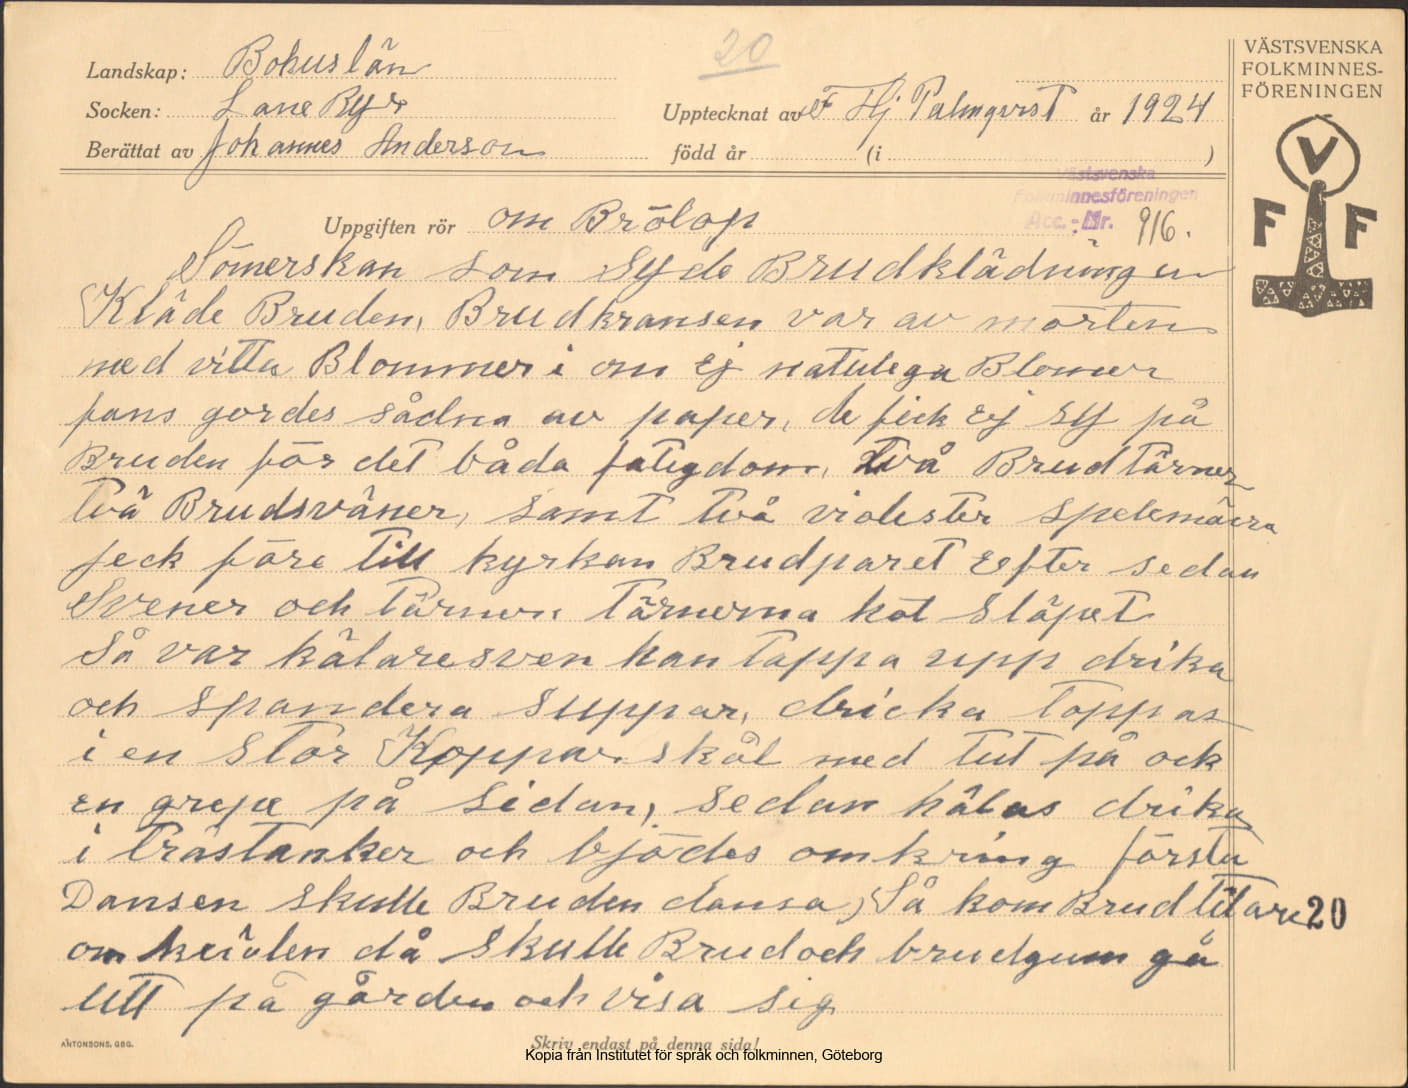 20
Landskap: Bohuslän
Socken: Lane Ryr
Upptecknat av F Hj Palmqvist år 1924
Berättat av Johannes Anderson
född år (i )
VÄSTSVENSKA
FOLKMINNES-
FÖRENINGEN
V
F F
Västsvenska
Folkminnesföreningen
Acc.-Nr. 916.
Uppgiften rör om Brölop
Sömerskan som Syde Brudklädningen
Kläde Bruden, Brudkransen var av mörten
med vitta Blommer i om Ej natulega Blomer
fans gordes sådna av paper, de fick Ej sy på
Bruden för det båda fatigdom, två Brudtärner
två Brudsväner, samt två violister spelemän
jeck före till kyrkan Brudparet Efter sedan
Svener och Tärner. Tärnerna höl Släpet
Så var kälaresven han tappa upp drika
och spandera suppar, dricka toppas
i en stor Koppar skål med tut på och
en grepe på sidan, sedan hälas drika
i trästanker och bjödes omkring första
Dansen skulle Bruden dansa, Så kom Brudtitare
om kvälen då skulle Brud och brudgum gå
utt på gården och visa sig
20
ANTONSONS, GBG.
Skriv endast på denna sida!
Kopia från Institutet för språk och folkminnen, Göteborg